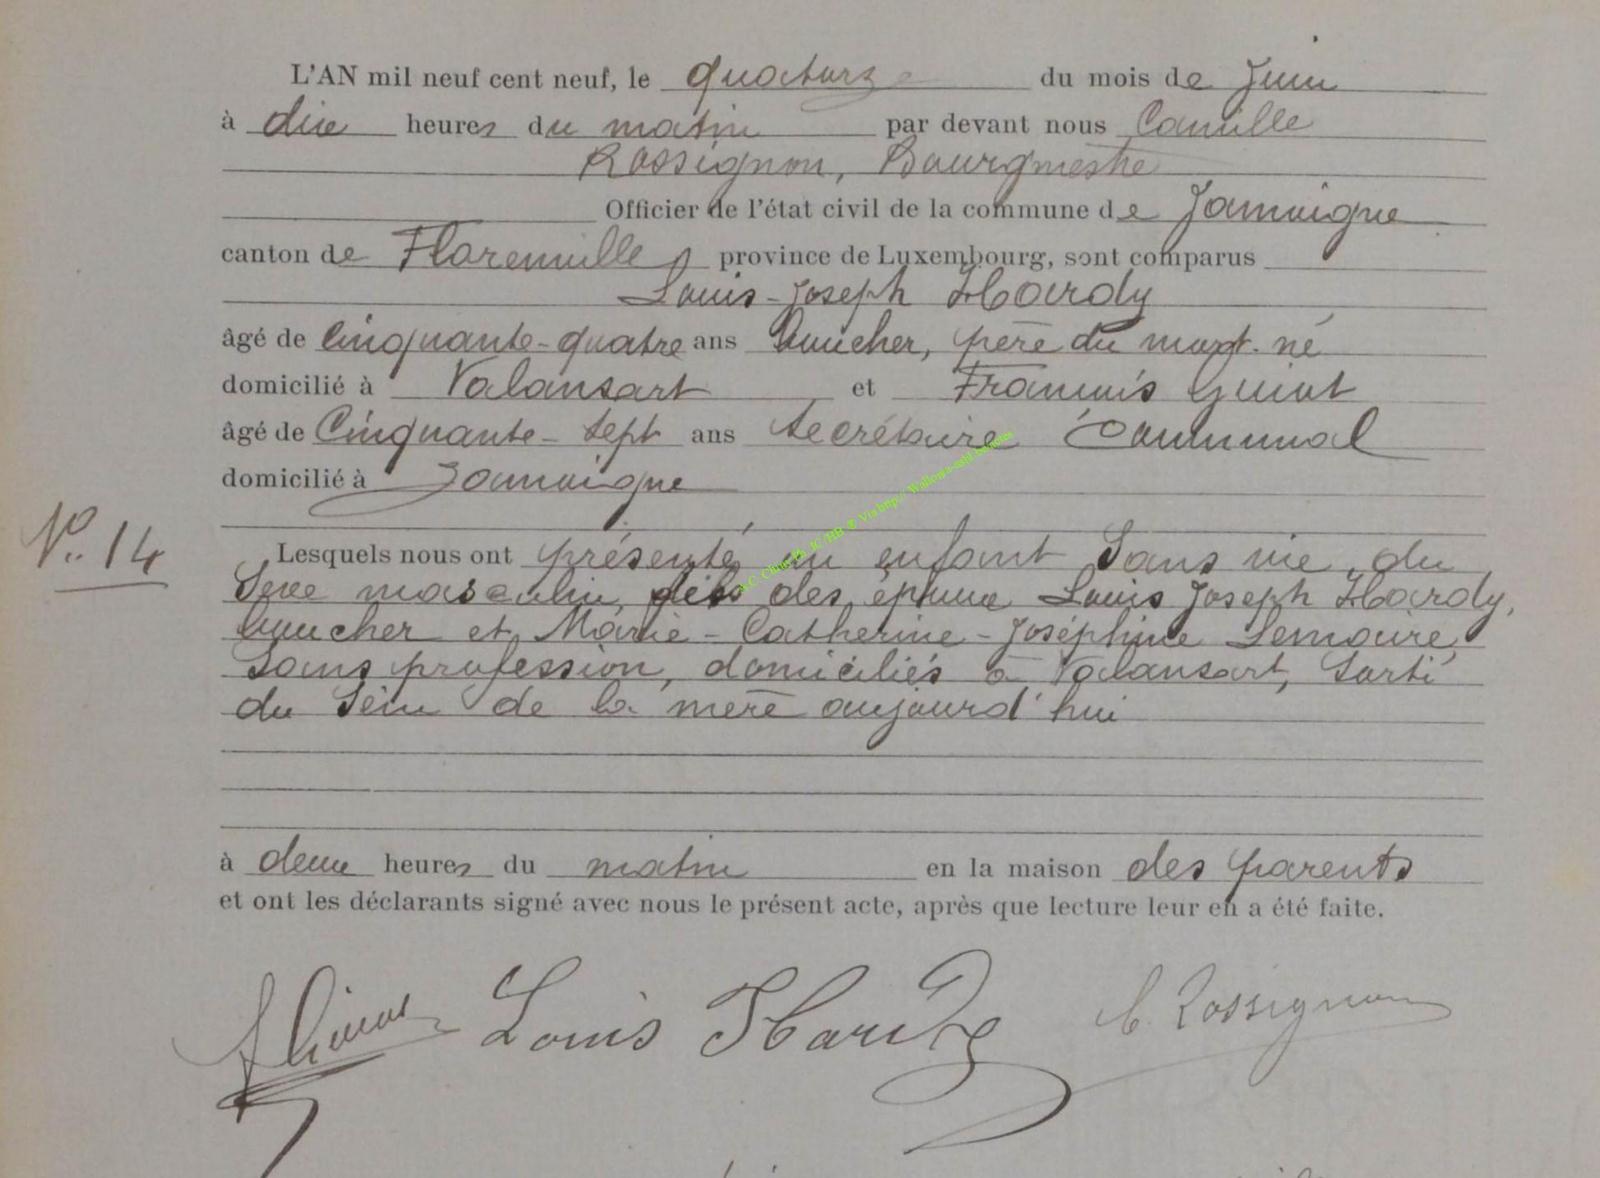 L'AN mil neuf cent neuf, le quatorze du mois de Juin
à dix heures du matin par devant nous Camille
Rossignon, Bourgmestre
Officier de l'état civil de la commune de Jamoigne
canton de Florenville, province de Luxembourg, sont comparus
Louis-Joseph Hardy
âgé de Cinquante-quatre ans boucher, père du mort-né
domicilié à Valansart et François Guiot
âgé de Cinquante-sept ans Secrétaire Communal
domicilié à Jamoigne
N°. 14
Lesquels nous ont présenté un enfant Sans vie, du
Sexe masculin, fils des époux Louis Joseph Hardy,
boucher et Marie-Catherine-Joséphine Lemaire,
Sans profession, domiciliés à Valansart, Sorti
du Sein de la mère aujourd'hui
à deux heures du matin en la maison des parents
et ont les déclarants signé avec nous le présent acte, après que lecture leur en a été faite.
Louis Hardy C. Rossignon